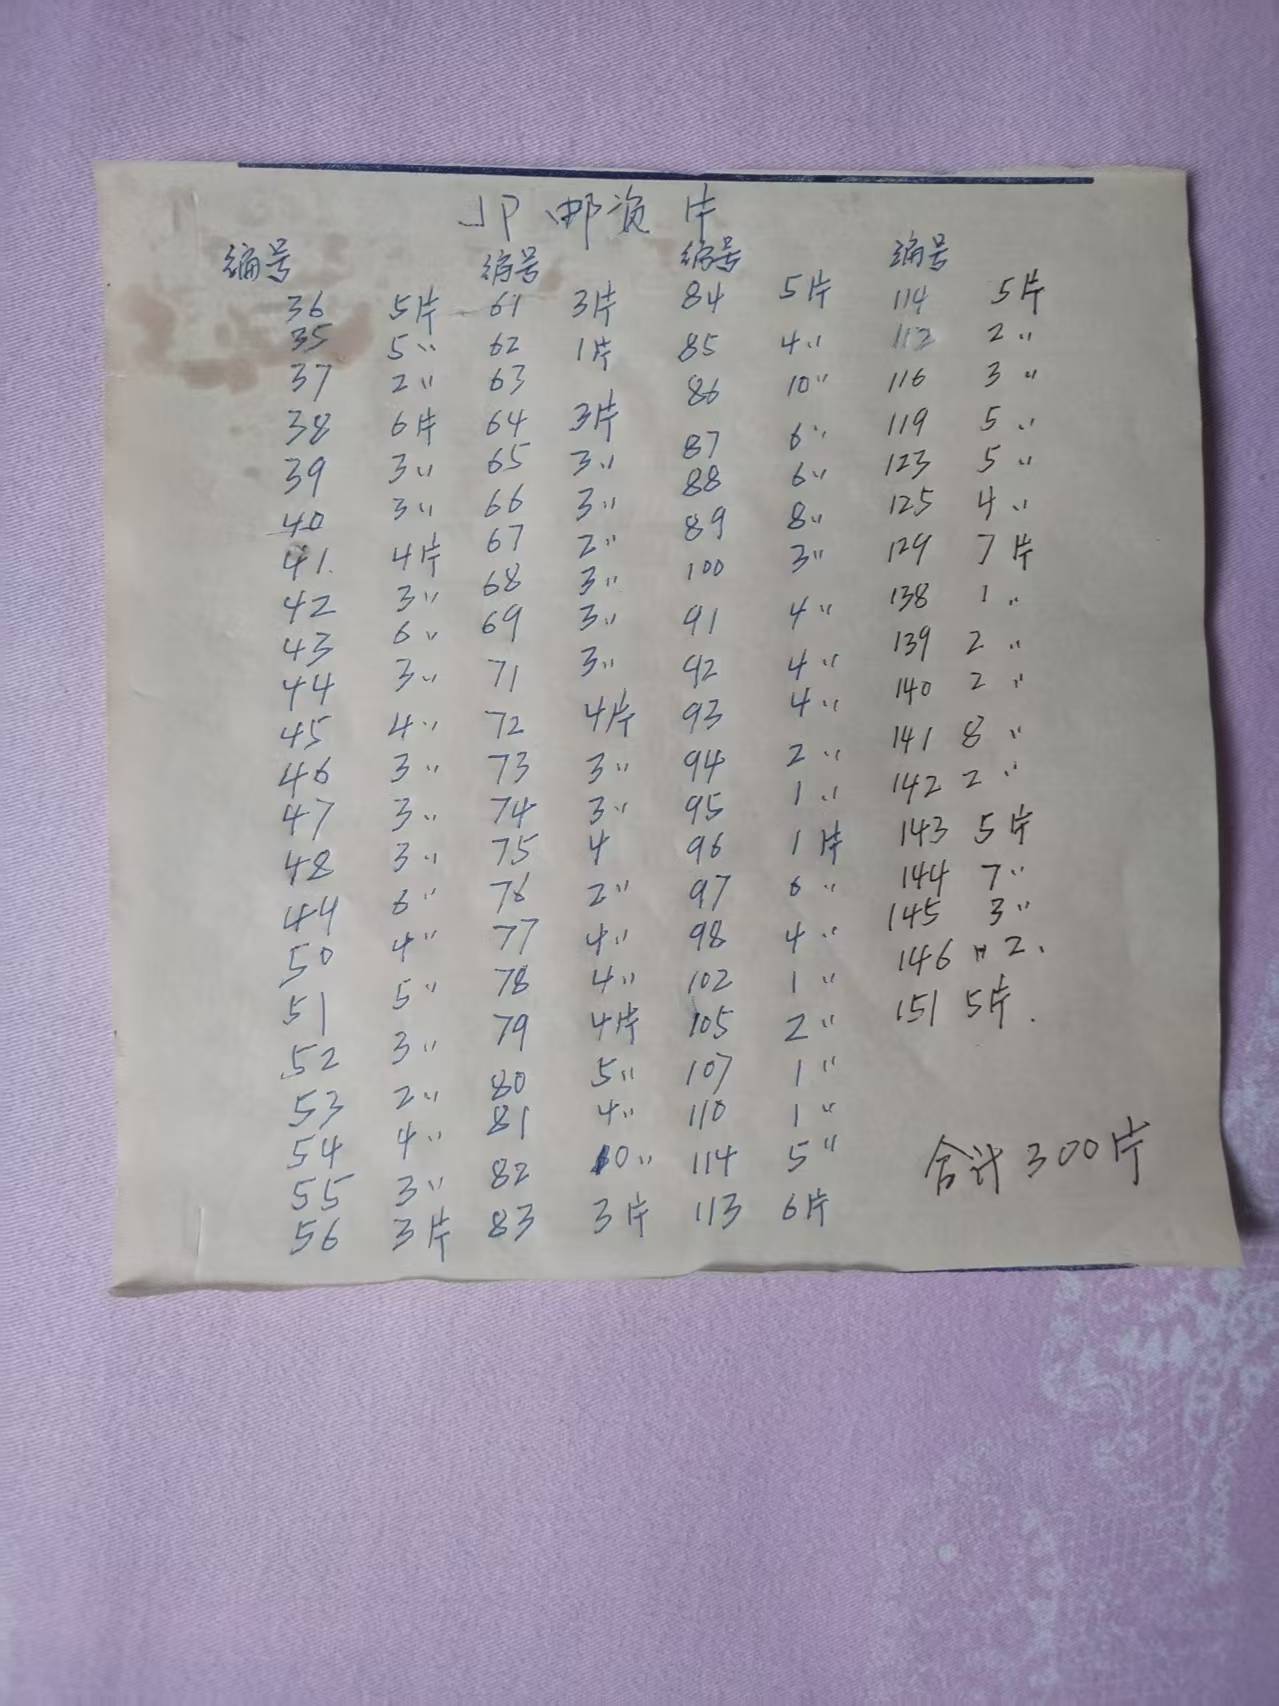 JP 邮资片
编号 编号 编号 编号
36 5片 61 3片 84 5片 114 5片
35 5〃 62 1片 85 4〃 112 2〃
37 2〃 63 86 10〃 116 3〃
38 6片 64 3片 87 6〃 119 5〃
39 3〃 65 3〃 88 6〃 123 5〃
40 3〃 66 3〃 89 8〃 125 4〃
41. 4片 67 2〃 100 3〃 129 7片
42 3〃 68 3〃 91 4〃 138 1〃
43 6〃 69 3〃 92 4〃 139 2〃
44 3〃 71 3〃 93 4〃 140 2〃
45 4〃 72 4片 94 2〃 141 8〃
46 3〃 73 3〃 95 1〃 142 2〃
47 3〃 74 3〃 96 1片 143 5片
48 3〃 75 4 97 6〃 144 7〃
49 6〃 76 2〃 98 4〃 145 3〃
50 4〃 77 4〃 102 1〃 146 〃 2.
51 5〃 78 4〃 105 2〃 151 5片.
52 3〃 79 4片 107 1〃
53 2〃 80 5〃 110 1〃
54 4〃 81 4〃 114 5〃
55 3〃 82 10〃 113 6片
56 3片 83 3片
合计300片